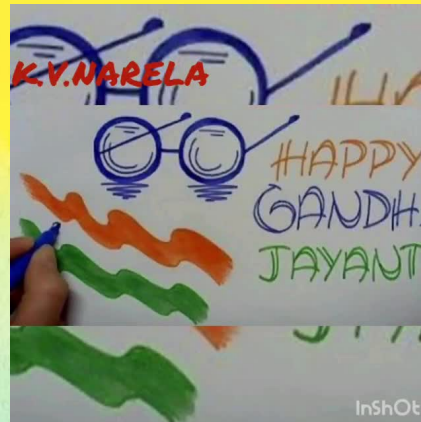 K.V.NARELA
HAPPY
GANDHI
JAYANT
InShOt